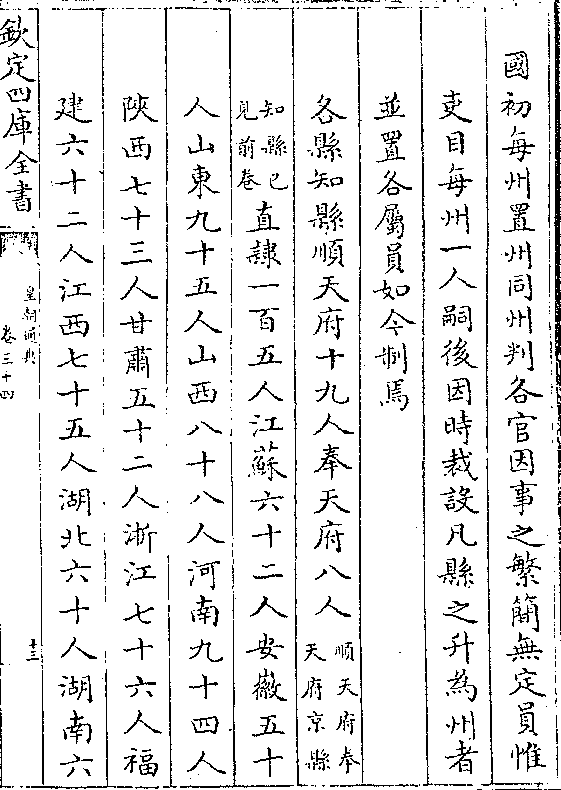 國初每州置州同州判各官因事之繁簡無定員惟
吏目每州一人嗣後因時裁設凡縣之升為州者
並置各屬員如今制焉
各縣知縣順天府十九人奉天府八人順天府奉天府京縣
知縣已見前卷直隷一百五人江蘇六十二人安徽五十
人山東九十五人山西八十八人河南九十四人
陜西七十三人甘肅五十二人浙江七十六人福
建六十二人江西七十五人湖北六十人湖南六
欽定四庫全書
皇朝通典
卷三十四
十三